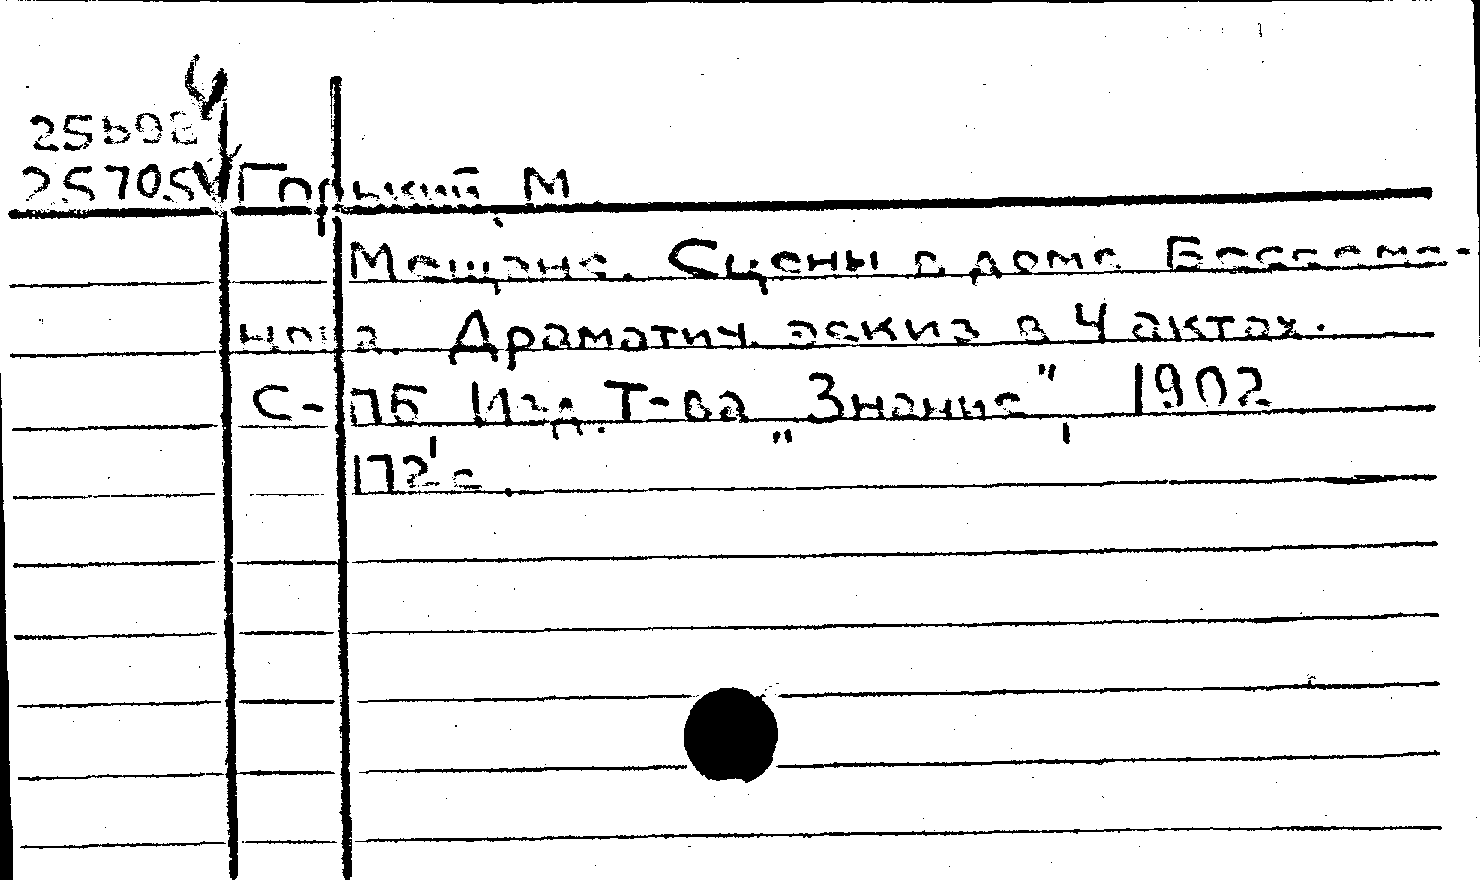 25698
25705 Горький, М.
Мещане. Сцены в доме Бессеме-
нова. Драматич. эскиз в 4 актах.
С-ПБ Изд. Т-ва „Знание", 1902
172 с.